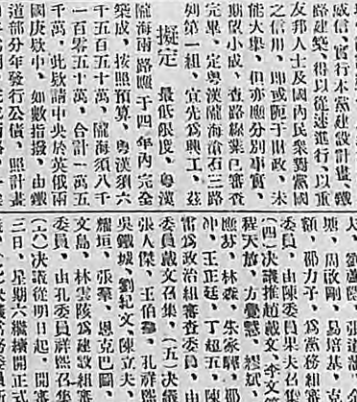 威信、實行本黨建設計畫、鐵
路建築、得以從速進行、以重
友邦人士及國內民衆對黨國
之信用、卽或阨于財政、未
能大舉、但亦應分別事實、
期望小成、查路線業已審查
完畢、定粵漢隴海滄石三路
列第一組、宜先爲興工、茲
擬定 最低限度、粵漢
隴海兩路應于四年內完全
築成、按照預算、粵漢須六
千五百五十萬、隴海須八千
一百零五十萬、合計一萬五
千萬、此欵請中央於英俄兩
國庚欵中、如數指撥、由鐵
道部分年發行公債、照計畫
塘、周啟剛、易培基、克
額、邵力子、爲黨務組審
委員、由陳委員果夫召集
(四)決議推趙戴文、李文範
程天放、方覺慧、繆斌、
應芬、林森、朱家驊、邵
冲、王正廷、丁超五、陳
雷爲政治組審查委員、由
委員戴文召集、(五)決議
張人傑、王伯羣、孔祥熙
吳鐵城、劉紀文、陳立夫、
耀垣、張羣、恩克巴圖、
文島、林雲陔爲建設組審
委員、由孔委員祥熙召集
(六)決議從明日起、開審
三日、星期六繼續開正式